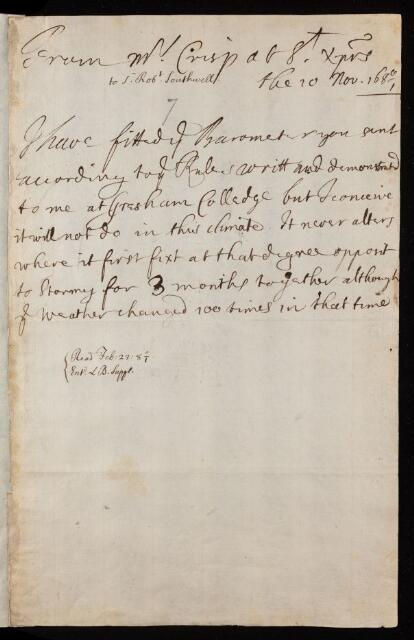 From Mr. Crisp at St. Xprs
to Sr. Robt Southwell the 10 Nov. 168
7
I have fitted ye Barometer you sent
according to ye Rules writt and demonstrated
to me at Gresham Colledge but I conceive
it will not do in this climate. It never alters
where it first fixt at that degree opposit
to Stormy for 3 months together although
ye Weather changed 100 times in that time
Read Feb: 22: 8
Entd. L. B. Suppl.